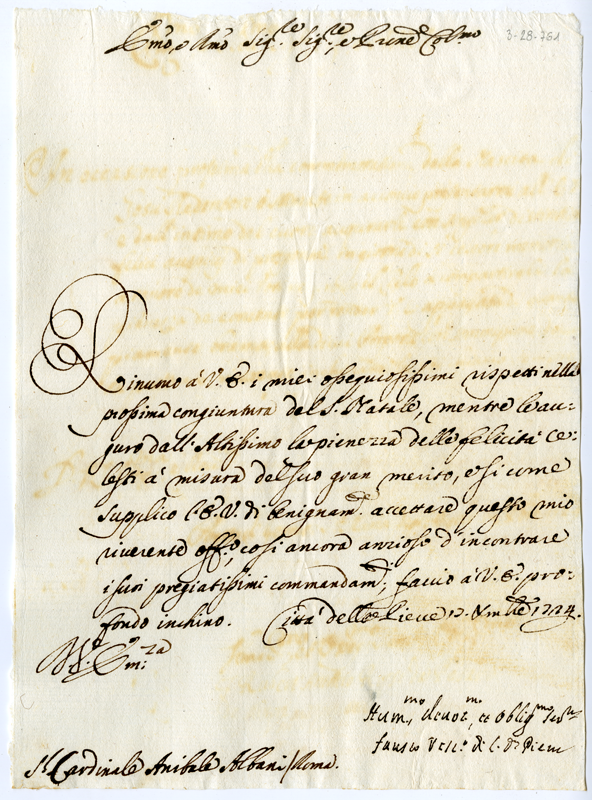 Emo, e Rmo Sig.re Sig.re, e Prone Col.mo
3-28-761
Rinuovo à V. E. i miei ossequiosissimi rispetti nella
prossima congiuntura del S. Natale, mentre le au-
guro dall'Altissimo la pienezza delle felicità Ce-
lesti à misura del suo gran merito, e si come
supplico l'E. V. di benignam.te accettare questo mio
riverente off.o, così ancora anzioso d'incontrare
i suoi pregiatissimi commandam.ti, faccio à V. E. pro-
fondo inchino. Città della Pieve 12. Xmbre 1714.
Hum.mo devot.mo, et oblig.mo Ser.re
Fausto Vesc.o di C. d. Pieve
S.r Cardinale Anibale Albani / Roma.